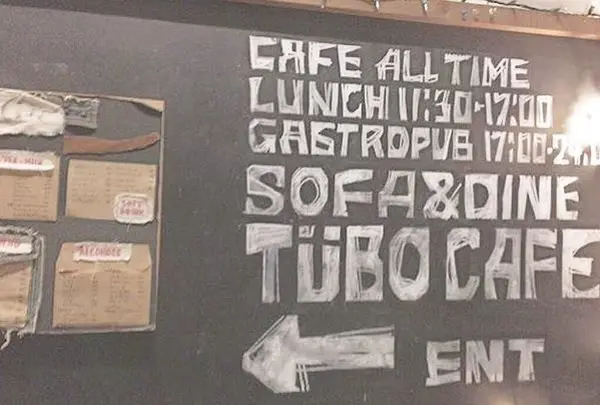 CAFE ALL TIME
LUNCH 11:30-17:00
GASTROPUB 17:00-2
SOFA&DINE
TÜBO CAFE
ENT
SOFT DRINK
ALCOHOLS